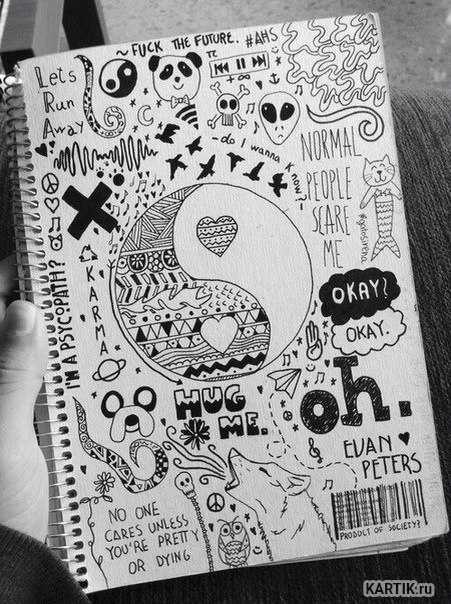 ~ FUCK THE FUTURE. #AHS
Lets
Run
Away
π
+∞
- do I wanna know? -
NORMAL
PEOPLE
SCARE
ME
I'M A PSYCOPATH?
KARMA
OKAY?
OKAY.
HUG
ME.
oh.
EVAN
PETERS
NO ONE
CARES UNLESS
YOU'RE PRETTY
OR DYING
PRODUCT OF SOCIETY?
KARTIK.ru